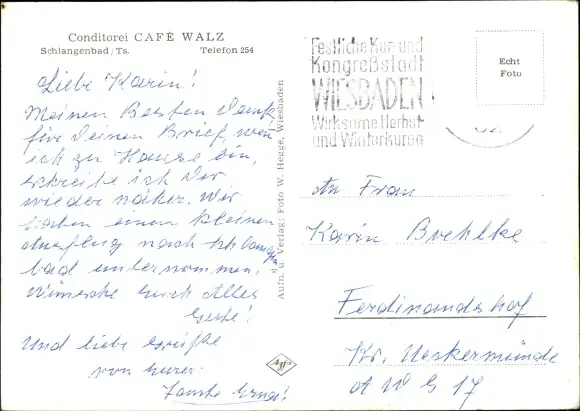 Conditorei CAFÉ WALZ
Schlangenbad/Ts. Telefon 254
Liebe Karin!
Meinen Besten Dank
für Deinen Brief, wen
ich zu Hause bin,
schreibe ich Dir
wieder näher. Wir
haben einen kleinen
Ausflug nach Schlangen
bad unternommen.
Wünsche Euch Alles
Gute!
Und liebe Grüße
von Eurer
Tante Erna!
Aufn. u. Verlag: Foto W. Hegge, Wiesbaden
Agfa
Festliche Kur- und
Kongreßstadt
WIESBADEN
Wirksame Herbst-
und Winterkuren
Echt
Foto
An Frau
Karin Brehlke
Ferdinandshof
Kr. Ueckermünde
A W G 17